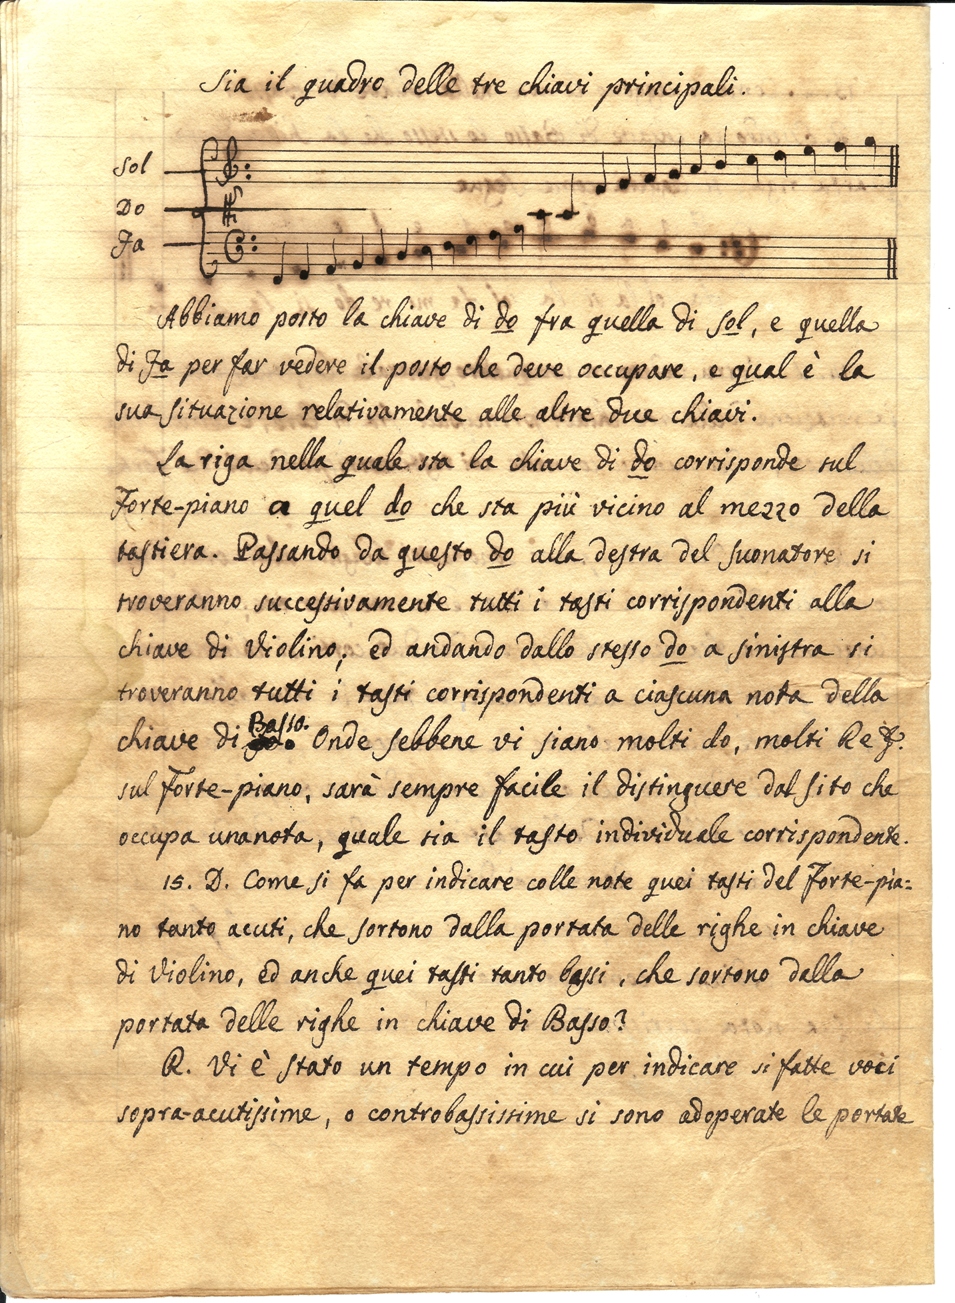 Sia il quadro delle tre chiavi principali.
Sol
Do
Fa
Abbiamo posto la chiave di do fra quella di sol, e quella
di Fa per far vedere il posto che deve occupare, e qual è la
sua situazione relativamente alle altre due chiavi.
La riga nella quale sta la chiave di do corrisponde sul
Forte-piano a quel do che sta più vicino al mezzo della
tastiera. Passando da questo do alla destra del suonatore si
troveranno successivamente tutti i tasti corrispondenti alla
chiave di Violino; ed andando dallo stesso do a sinistra si
troveranno tutti i tasti corrispondenti a ciascuna nota della
chiave di Basso. Onde sebbene vi siano molti do, molti Re &.
sul Forte-piano, sarà sempre facile il distinguere dal sito che
occupa una nota, quale sia il tasto individuale corrispondente.
15. D. Come si fa per indicare colle note quei tasti del Forte-pia=
no tanto acuti, che sortono dalla portata delle righe in chiave
di Violino, ed anche quei tasti tanto bassi, che sortono dalla
portata delle righe in chiave di Basso?
R. Vi è stato un tempo in cui per indicare si fatte voci
sopra-acutissime, o controbassissime si sono adoperate le portate